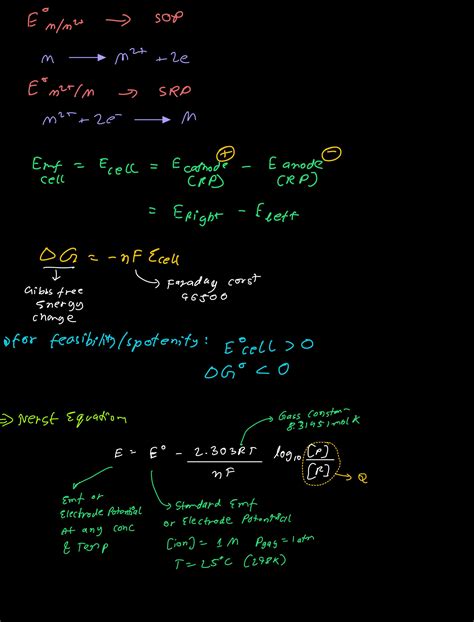 E° M/M²⁺ → SOP
M → M²⁺ + 2e
E° M²⁺/M → SRP
M²⁺ + 2e⁻ → M
Emf cell = Ecell = Ecathode (RP) ⊕ − Eanode (RP) ⊖
= ERight − Eleft
ΔG = −nF Ecell
Gibbs free Energy change
Faraday const
96500
for feasibility/spotenity: E°cell > 0
ΔG° < 0
⇒ Nerst Equation
Gass Constan-
E = E° − 2.303RT/nF log₁₀ [P]/[R] → Q
Emf or
Electrode Potential
At any conc
& Temp
Standard Emf
or Electrode Potential
[ion] = 1 M Pgas = 1 atm
T = 25°C (298K)